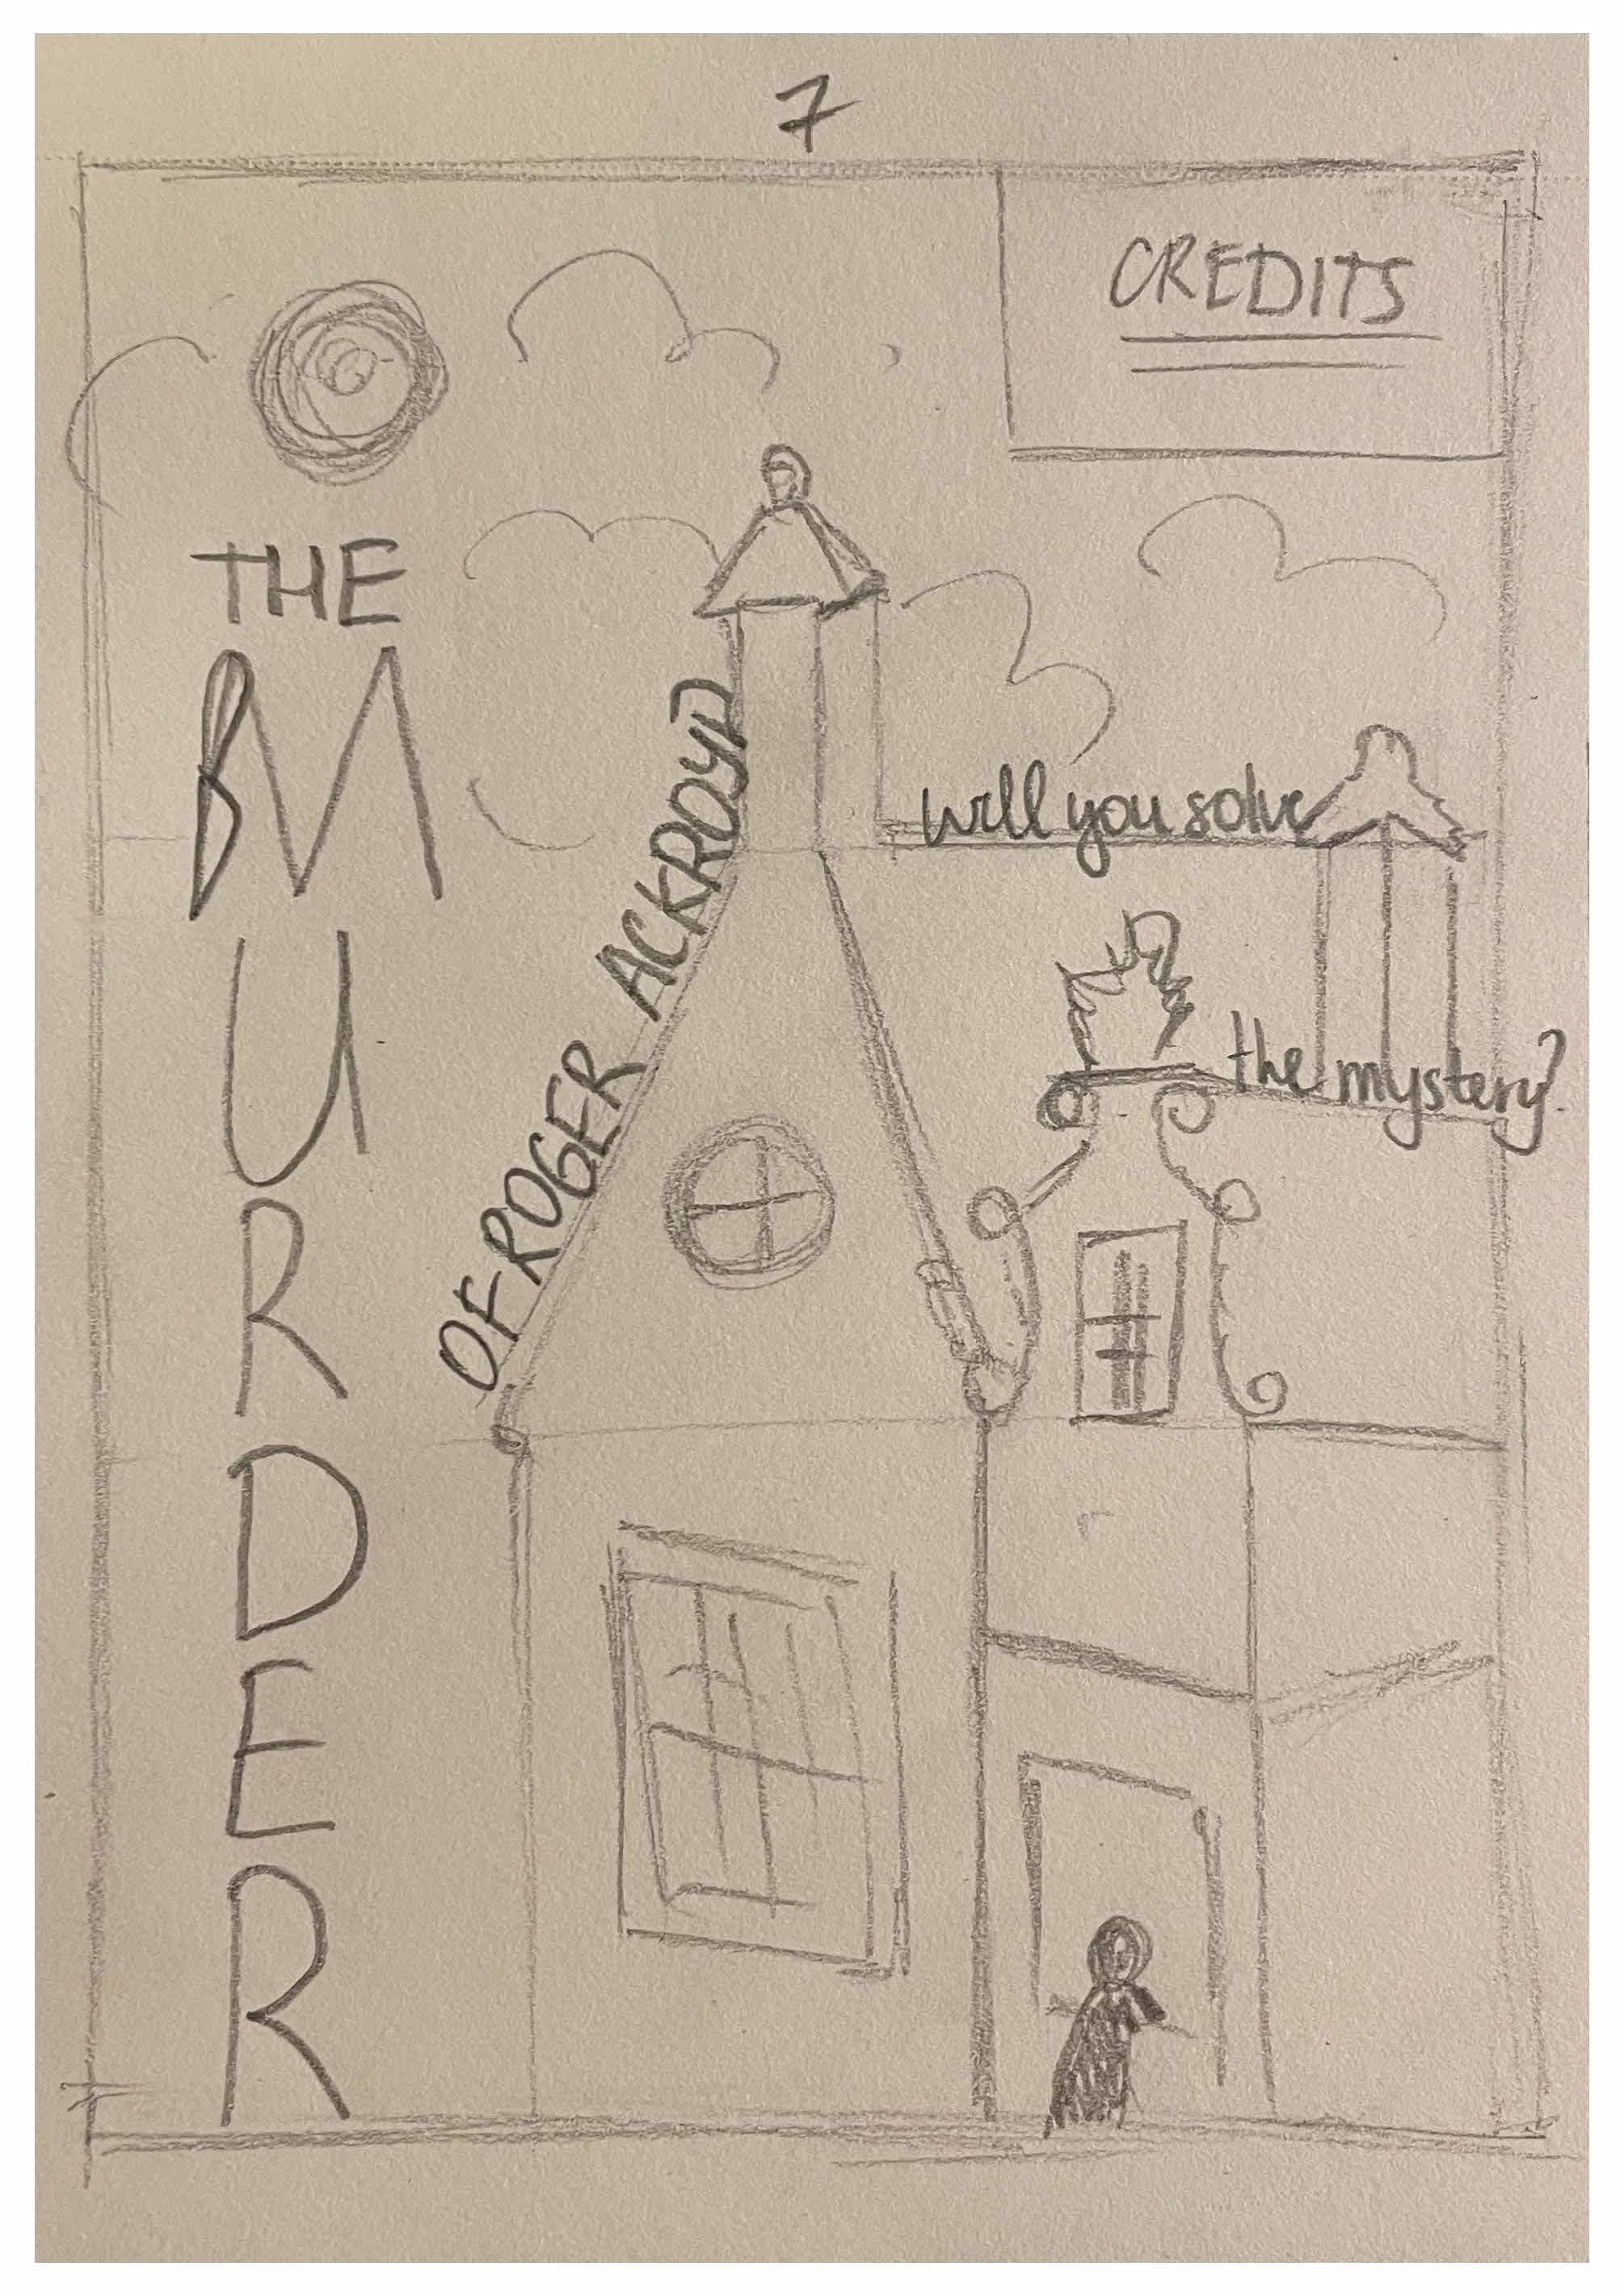 7
CREDITS
THE
MURDER
OF ROGER ACKROYD
will you solve
the mystery?